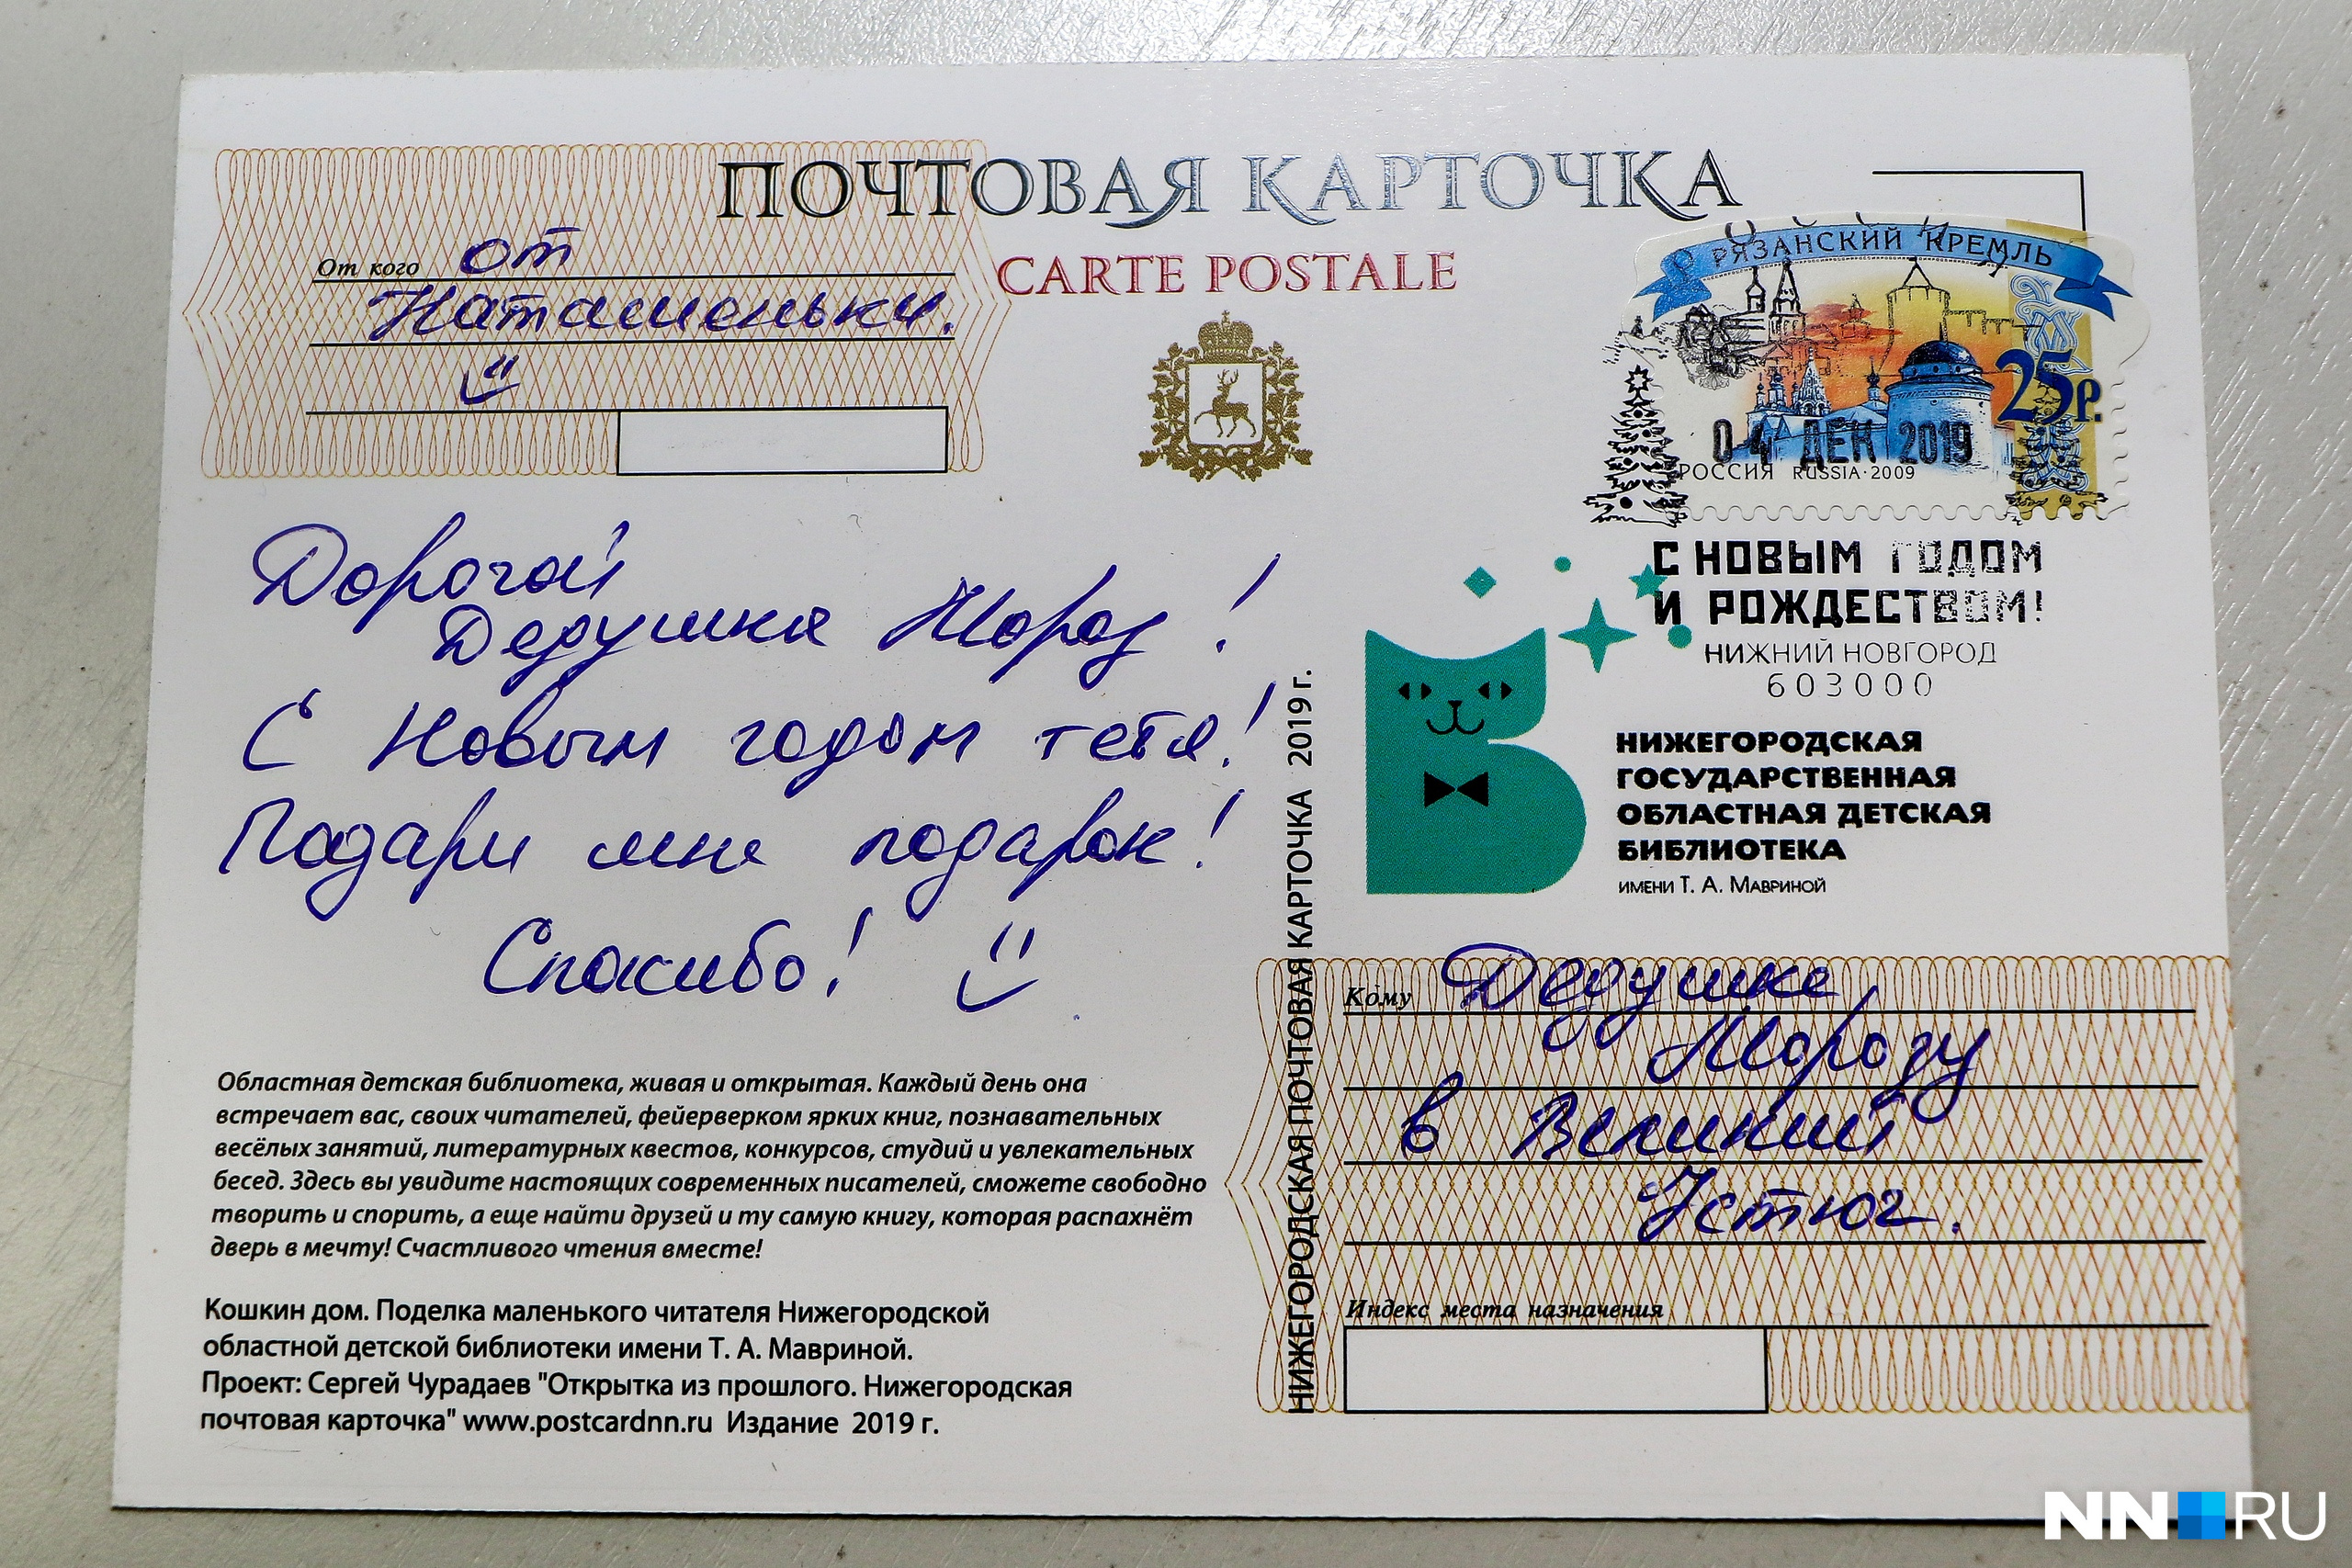 ПОЧТОВАЯ КАРТОЧКА
CARTE POSTALE
От кого от
Наташеньки.
РЯЗАНСКИЙ КРЕМЛЬ
25р.
04 ДЕК 2019
РОССИЯ RUSSIA·2009
С НОВЫМ ГОДОМ
И РОЖДЕСТВОМ!
НИЖНИЙ НОВГОРОД
603000
Дорогой
Дедушка Мороз!
С Новым годом тебя!
Подари мне подарок!
Спасибо!
НИЖЕГОРОДСКАЯ
ГОСУДАРСТВЕННАЯ
ОБЛАСТНАЯ ДЕТСКАЯ
БИБЛИОТЕКА
ИМЕНИ Т. А. МАВРИНОЙ
НИЖЕГОРОДСКАЯ ПОЧТОВАЯ КАРТОЧКА 2019 г.
Кому Дедушке
Морозу
в Великий
Устюг.
Индекс места назначения
Областная детская библиотека, живая и открытая. Каждый день она
встречает вас, своих читателей, фейерверком ярких книг, познавательных
весёлых занятий, литературных квестов, конкурсов, студий и увлекательных
бесед. Здесь вы увидите настоящих современных писателей, сможете свободно
творить и спорить, а еще найти друзей и ту самую книгу, которая распахнёт
дверь в мечту! Счастливого чтения вместе!
Кошкин дом. Поделка маленького читателя Нижегородской
областной детской библиотеки имени Т. А. Мавриной.
Проект: Сергей Чурадаев "Открытка из прошлого. Нижегородская
почтовая карточка" www.postcardnn.ru Издание 2019 г.
NN RU